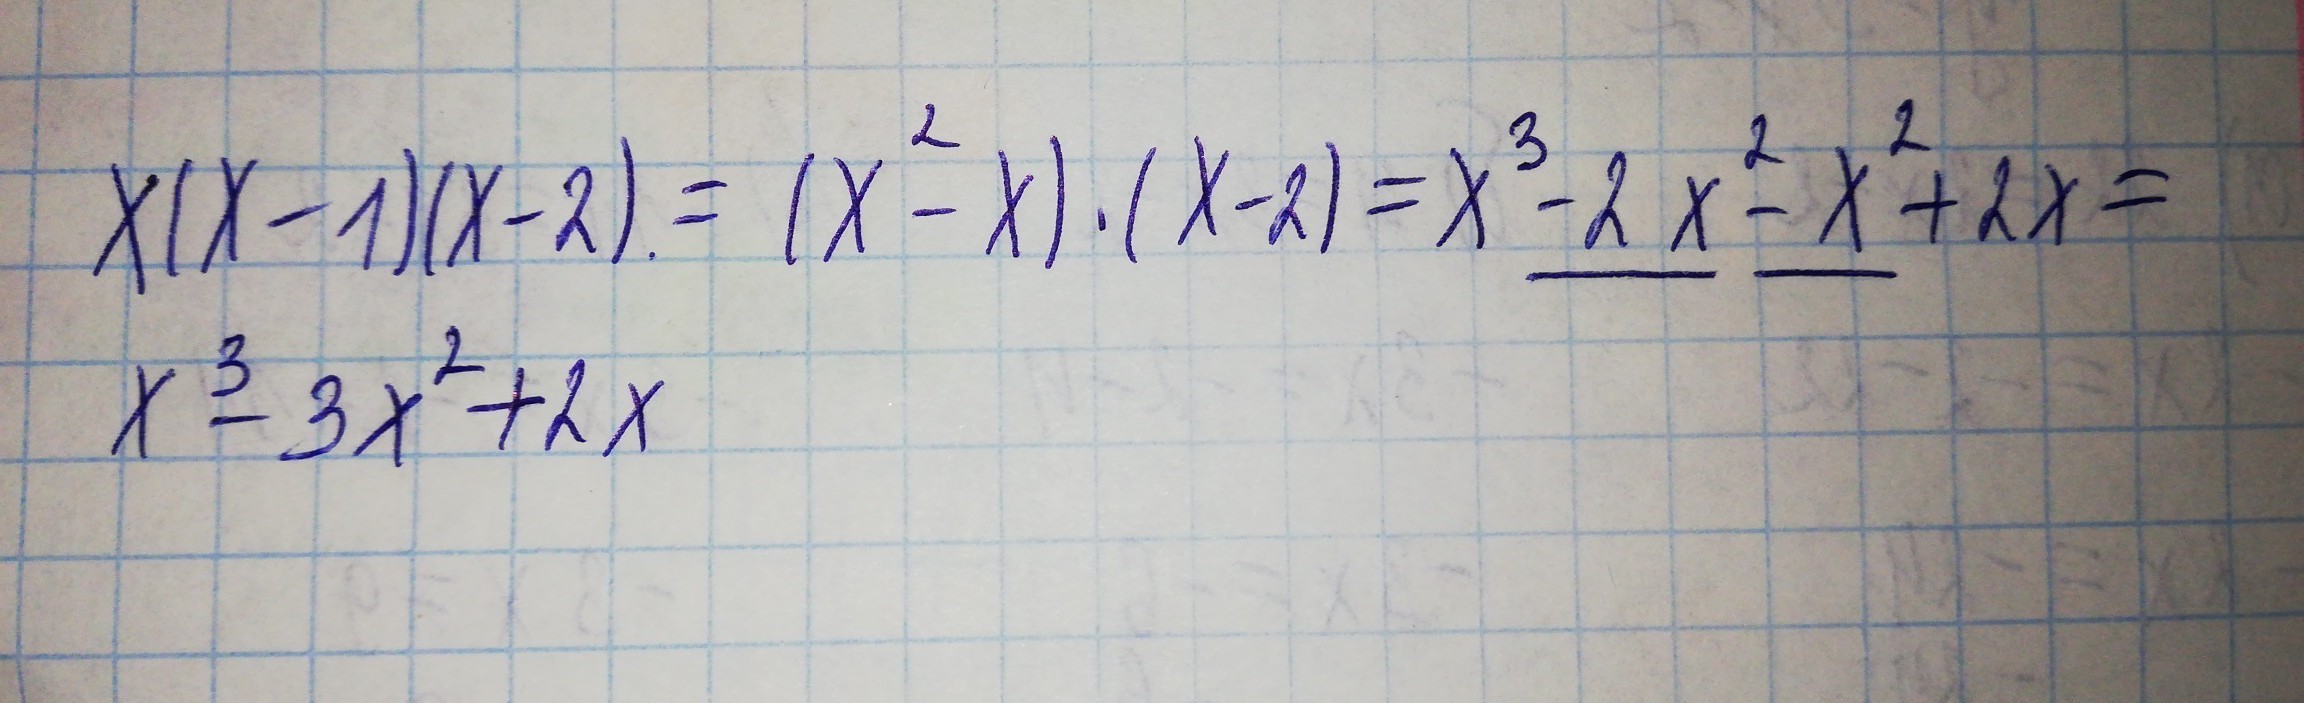 x(x-1)(x-2).= (x²-x)·(x-2)=x³-2x²-x²+2x=
x³-3x²+2x